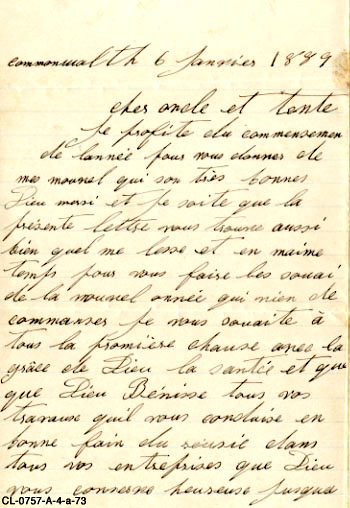 commonwalth 6 janvier 1889
cher oncle et tente
je profite du commensemen
de lannée pour vous donner de
mes nouvel qui son très bonnes
Dieu mersi et je soite que la
présente lettre vous trouve aussi
bien quel me lesse et en maime
temps pour vous faire les souai
de la nouvel année qui vien de
commanser je vous souaite à
tous la promiière chause avec la
grâce de Dieu la santée et que
que Dieu Bénisse tous vos
travause quil vous conduise en
bonne fain du réusit dans
tous vos entreprises que Dieu
vous conserve heureuse jusqua
CL-0757-A-4-a-73